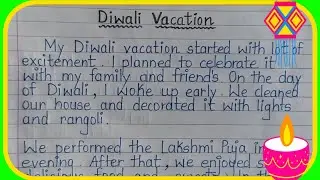 Diwali Vacation
My Diwali vacation started with lot of
excitement. I planned to celebrate it
with my family and friends. On the day
of Diwali, I woke up early. We cleaned
our house and decorated it with lights
and rangoli.
We performed the Lakshmi Puja in
evening. After that, we enjoyed
delicious food and sweets. In the